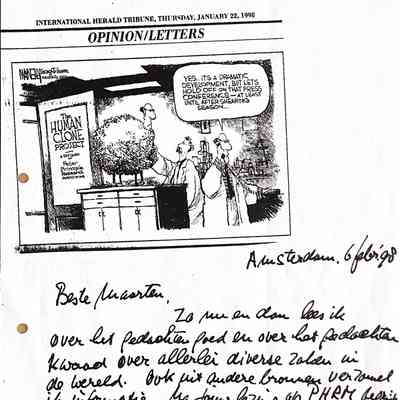 INTERNATIONAL HERALD TRIBUNE, THURSDAY, JANUARY 22, 1998
OPINION/LETTERS
YES.. ITS A DRAMATIC
DEVELOPMENT, BUT LETS
HOLD OFF ON THAT PRESS
CONFERENCE — AT LEAST
UNTIL AFTER SHEARING
SEASON...
The
HUMAN
CLONE
PROJECT
Amsterdam, 6 febr '98
Beste Maarten,
Zo nu en dan lees ik
over het gedachten goed en over het gedachten
kwaad over allerlei diverse zaken in
de wereld. Ook uit andere bronnen verzamel
ik informatie.